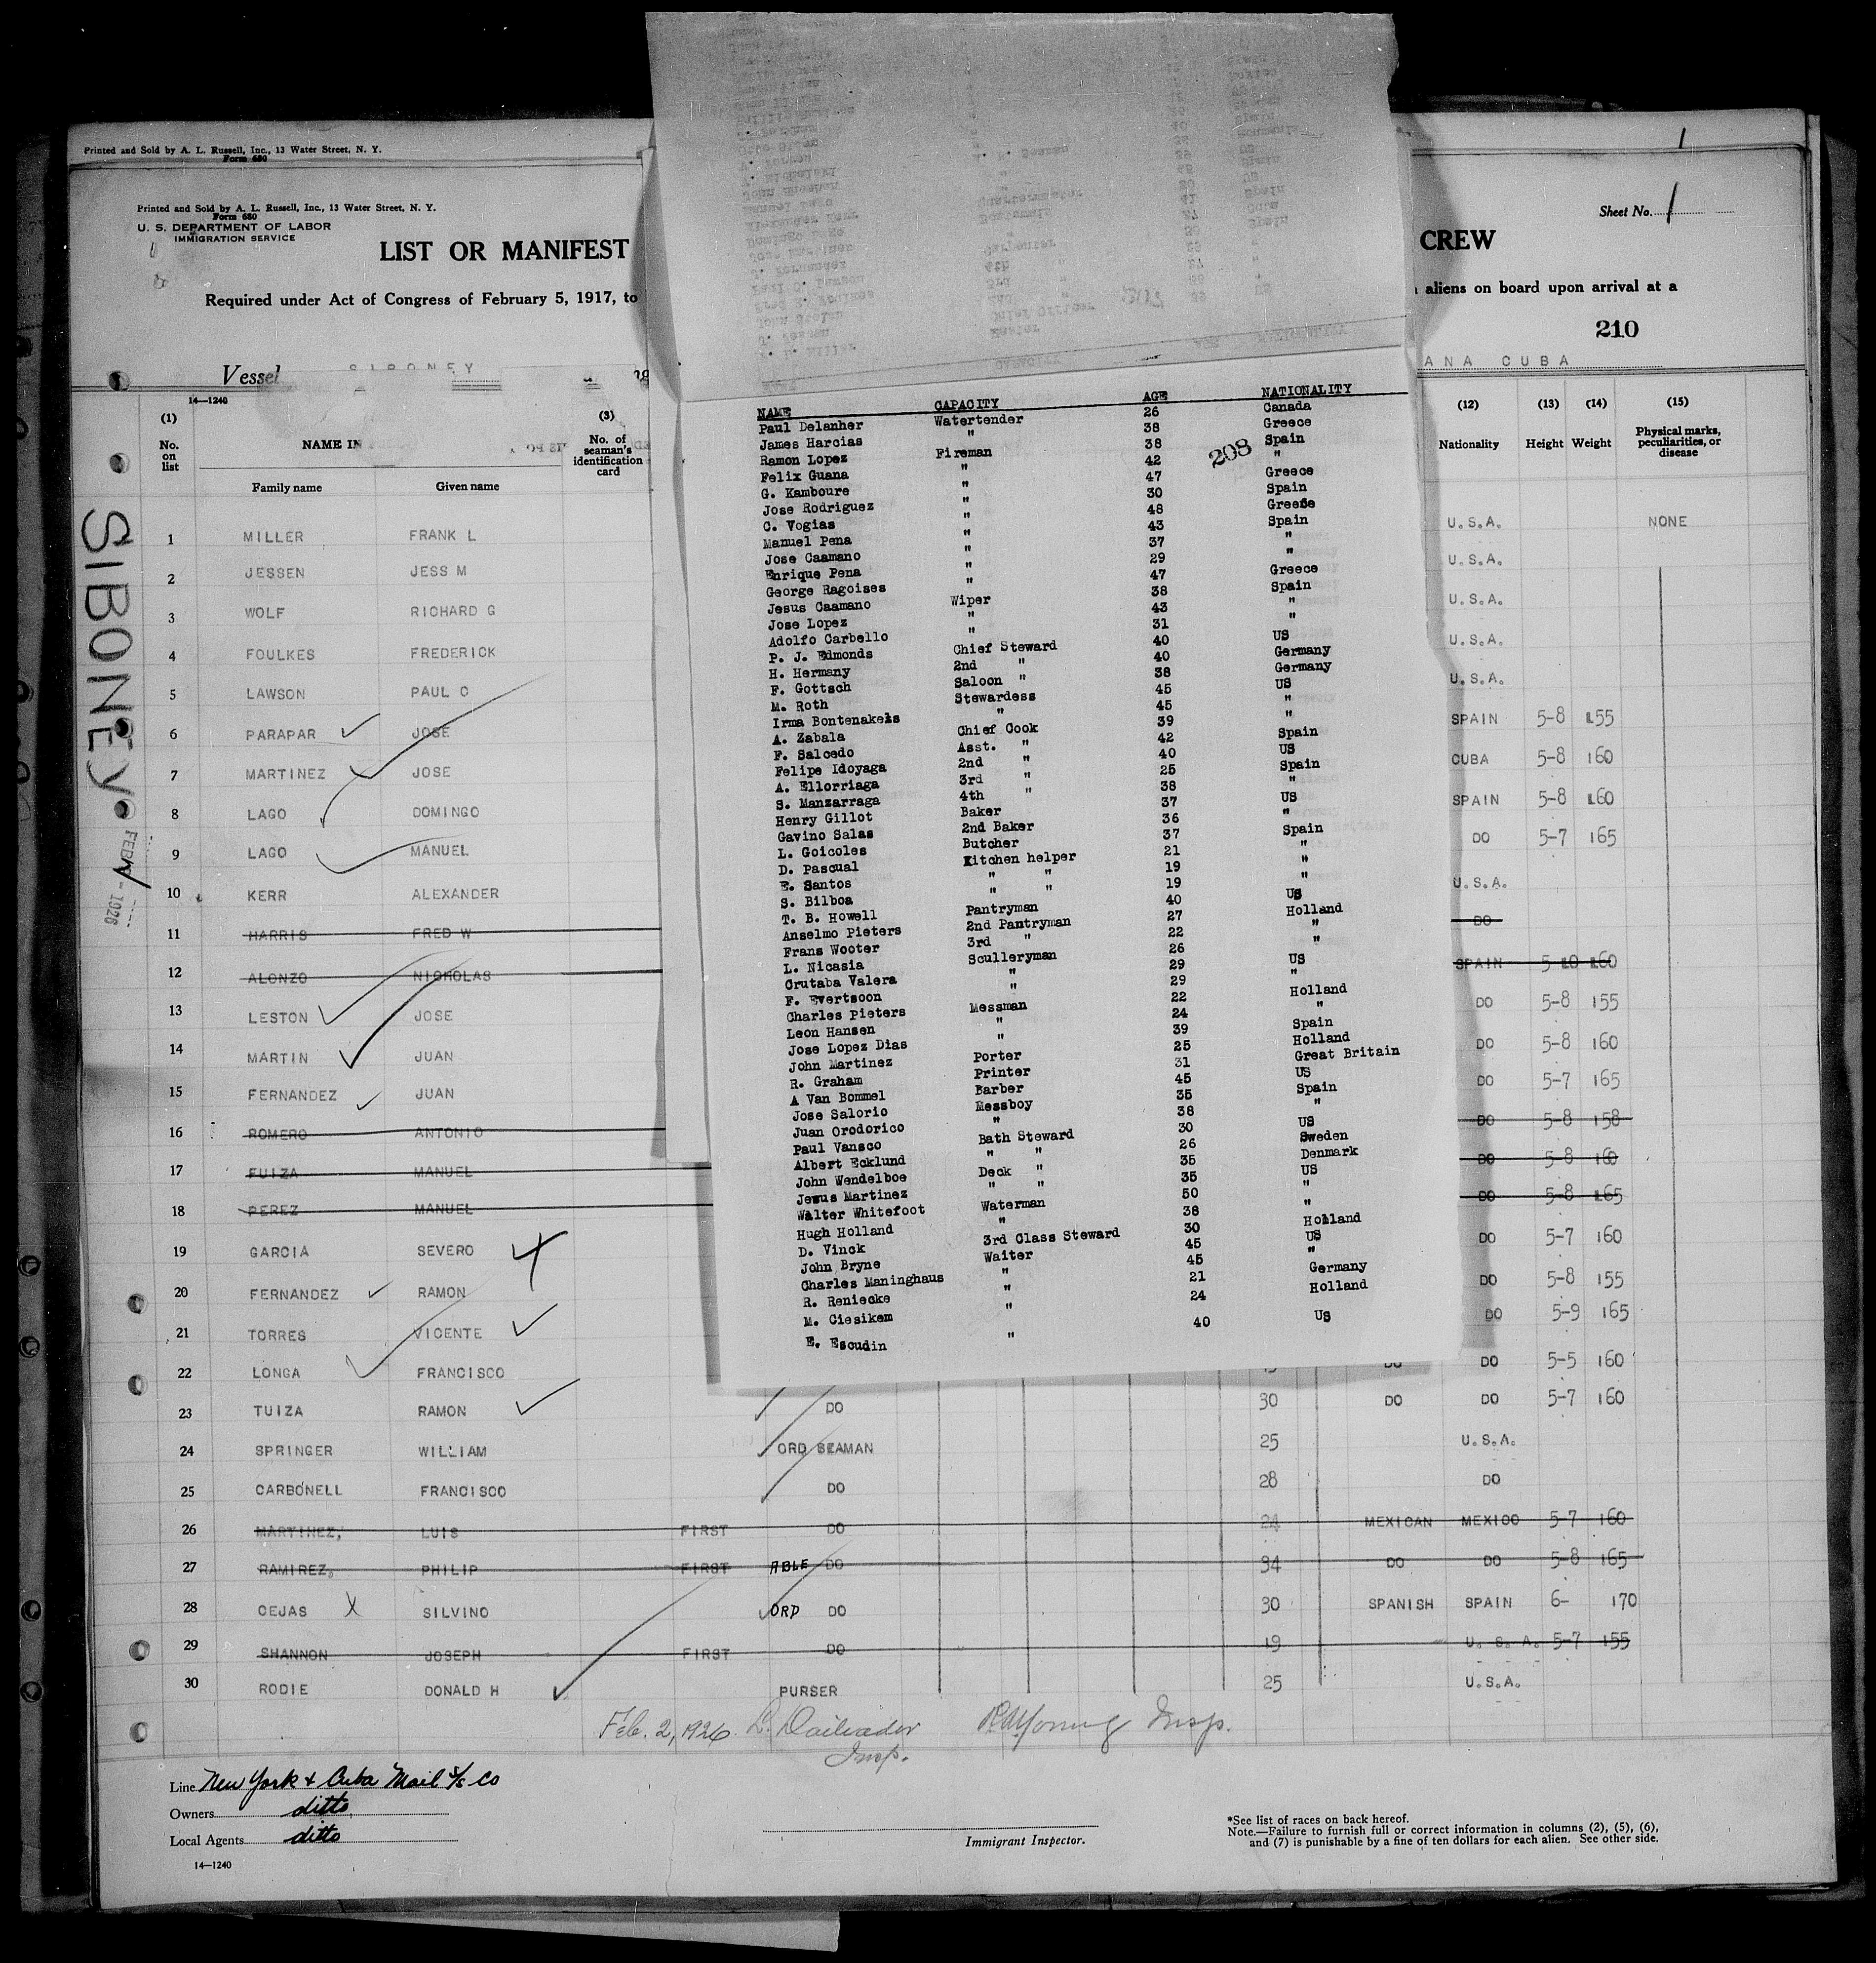 Printed and Sold by A. L. Russell, Inc., 13 Water Street, N. Y.
Form 680
Printed and Sold by A. L. Russell, Inc., 13 Water Street, N. Y.
Form 680
U. S. DEPARTMENT OF LABOR
IMMIGRATION SERVICE
Sheet No. 1
LIST OR MANIFEST
CREW
Required under Act of Congress of February 5, 1917, to
aliens on board upon arrival at a
210
Vessel SIBONEY
ANA CUBA
14—1240
(1) (3) (12) (13) (14) (15)
No. on list
NAME IN
No. of seaman's identification card
Nationality Height Weight Physical marks, peculiarities, or disease
Family name Given name
SIBONEY
FEB - 1926
1 MILLER FRANK L U.S.A. NONE
2 JESSEN JESS M U.S.A.
3 WOLF RICHARD G U.S.A.
4 FOULKES FREDERICK U.S.A.
5 LAWSON PAUL C U.S.A.
6 PARAPAR JOSE SPAIN 5-8 155
7 MARTINEZ JOSE CUBA 5-8 160
8 LAGO DOMINGO SPAIN 5-8 160
9 LAGO MANUEL DO 5-7 165
10 KERR ALEXANDER U.S.A.
11 HARRIS FRED W DO
12 ALONZO NICHOLAS SPAIN 5-10 160
13 LESTON JOSE DO 5-8 155
14 MARTIN JUAN DO 5-8 160
15 FERNANDEZ JUAN DO 5-7 165
16 ROMERO ANTONIO DO 5-8 158
17 FUIZA MANUEL DO 5-8 160
18 PEREZ MANUEL DO 5-8 165
19 GARCIA SEVERO DO 5-7 160
20 FERNANDEZ RAMON DO 5-8 155
21 TORRES VICENTE DO 5-9 165
22 LONGA FRANCISCO DO DO 5-5 160
23 TUIZA RAMON DO 30 DO DO 5-7 160
24 SPRINGER WILLIAM ORD SEAMAN 25 U.S.A.
25 CARBONELL FRANCISCO DO 28 DO
26 MARTINEZ, LUIS FIRST DO 24 MEXICAN MEXICO 5-7 160
27 RAMIREZ, PHILIP FIRST ABLE DO 34 DO DO 5-8 165
28 CEJAS SILVINO ORD DO 30 SPANISH SPAIN 6- 170
29 SHANNON JOSEPH FIRST DO 19 U. S. A. 5-7 155
30 RODIE DONALD H PURSER 25 U.S.A.
NAME CAPACITY AGE NATIONALITY
208
Paul Delanher Watertender 26 Canada
James Harcias " 38 Greece
Ramon Lopez Fireman 38 Spain
Felix Guana " 42 "
G. Kamboure " 47 Greece
Jose Rodriguez " 30 Spain
C. Vogias " 48 Greese
Manuel Pena " 43 Spain
Jose Caamano " 37 "
Enrique Pena " 29 "
George Ragoises " 47 Greece
Jesus Caamano Wiper 38 Spain
Jose Lopez " 43 "
Adolfo Carbello " 31 "
P. J. Edmonds Chief Steward 40 US
H. Hermany 2nd " 40 Germany
F. Gottsch Saloon " 38 Germany
M. Roth Stewardess 45 US
Irma Bontenakels " 45 "
A. Zabala Chief Cook 39 "
F. Salcedo Asst. " 42 Spain
Felipe Idoyaga 2nd " 40 US
A. Ellorriaga 3rd " 25 Spain
S. Manzarraga 4th " 38 "
Henry Gillot Baker 37 US
Gavino Salas 2nd Baker 36 "
L. Goicoles Butcher 37 Spain
D. Pascual Kitchen helper 21 "
E. Santos " " 19 "
S. Bilboa " " 19 "
T. B. Howell Pantryman 40 US
Anselmo Pieters 2nd Pantryman 27 Holland
Frans Wooter 3rd " 22 "
L. Nicasia Sculleryman 26 "
Crutaba Valera " 29 US
F. Evertsoon " 29 "
Charles Pieters Messman 22 Holland
Leon Hansen " 24 "
Jose Lopez Dias " 39 Spain
John Martinez Porter 25 Holland
R. Graham Printer 31 Great Britain
A Van Bommel Barber 45 US
Jose Salorio Messboy 35 Spain
Juan Orodorico " 38 "
Paul Vansco Bath Steward 30 US
Albert Ecklund " " 26 Sweden
John Wendelboe Deck " 35 Denmark
Jesus Martinez " " 35 US
Walter Whitefoot Waterman 50 "
Hugh Holland " 38 "
D. Vinck 3rd Class Steward 30 Holland
John Bryne Waiter 45 US
Charles Maninghaus " 45 "
R. Reniecke " 21 Germany
M. Ciesikem " 24 Holland
E. Escudin " 40 US
Feb. 2, 1926.
Insp.
Insp.
Line New York & Cuba Mail S/S Co
Owners ditto
Local Agents ditto
14—1240
Immigrant Inspector.
*See list of races on back hereof.
Note.—Failure to furnish full or correct information in columns (2), (5), (6),
and (7) is punishable by a fine of ten dollars for each alien. See other side.